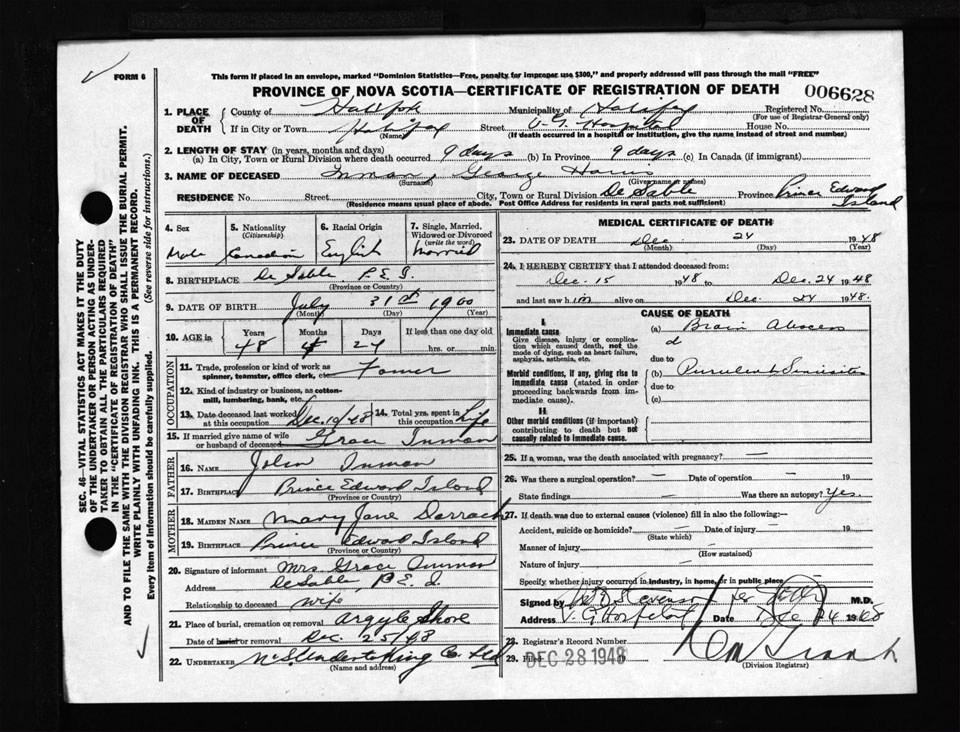 FORM 6
This form if placed in an envelope, marked "Dominion Statistics—Free, penalty for improper use $300," and properly addressed will pass through the mail "FREE"
PROVINCE OF NOVA SCOTIA—CERTIFICATE OF REGISTRATION OF DEATH
006628
1. PLACE OF DEATH
County of Halifax Municipality of Halifax Registered No.
(For use of Registrar General only)
If in City or Town Halifax Street V.G. Hospital House No.
(Name) (If death occurred in a hospital or institution, give the name instead of street and number)
2. LENGTH OF STAY (in years, months and days)
(a) In City, Town or Rural Division where death occurred 9 days (b) In Province 9 days (c) In Canada (if immigrant)
3. NAME OF DECEASED Inman, George
(Surname) (Given name or names)
RESIDENCE No. Street City, Town or Rural Division De Sable Province Prince Edward Island
(Residence means usual place of abode. Post Office Address for residents in rural parts not sufficient)
4. Sex Male
5. Nationality (Citizenship) Canadian
6. Racial Origin English
7. Single, Married, Widowed or Divorced (write the word) Married
8. BIRTHPLACE De Sable P.E.I.
(Province or Country)
9. DATE OF BIRTH July 31st 1900
(Month) (Day) (Year)
10. AGE in Years Months Days If less than one day old
48 4 24 hrs. or min.
OCCUPATION
11. Trade, profession or kind of work as spinner, teamster, office clerk, etc. Farmer
12. Kind of industry or business, as cotton-mill, lumbering, bank, etc.
13. Date deceased last worked at this occupation Dec. 10/48
14. Total yrs. spent in this occupation Life
15. If married give name of wife or husband of deceased Grace Inman
FATHER
16. NAME John Inman
17. BIRTHPLACE Prince Edward Island
(Province or Country)
MOTHER
18. MAIDEN NAME Mary Jane Darrach
19. BIRTHPLACE Prince Edward Island
(Province or Country)
20. Signature of informant Mrs. Grace Inman
Address DeSable, P.E.I.
Relationship to deceased wife
21. Place of burial, cremation or removal Argyle Shore
Date of burial or removal Dec. 25/48
22. UNDERTAKER Undertaking Co. Ltd
(Name and address)
MEDICAL CERTIFICATE OF DEATH
23. DATE OF DEATH Dec. 24 1948
(Month) (Day) (Year)
24. I HEREBY CERTIFY that I attended deceased from:
Dec. 15 1948 to Dec. 24 1948
and last saw him alive on Dec. 24 1948.
CAUSE OF DEATH
I.
Immediate cause
Give disease, injury or complication which caused death, not the mode of dying, such as heart failure, asphyxia, asthenia, etc.
(a) Brain Abscess
due to
Morbid conditions, if any, giving rise to immediate cause (stated in order proceeding backwards from immediate cause).
(b) Purulent Sinusitis
due to
(c)
II.
Other morbid conditions (if important) contributing to death but not causally related to immediate cause.
25. If a woman, was the death associated with pregnancy? —
26. Was there a surgical operation? — Date of operation — 19
State findings — Was there an autopsy? Yes.
27. If death was due to external causes (violence) fill in also the following:—
Accident, suicide or homicide? — Date of injury — 19
(State which)
Manner of injury
(How sustained)
Nature of injury
Specify whether injury occurred in industry, in home, or in public place
Signed by Stevenson per M.D.
Address V.G. Hospital Date Dec 24 1948
28. Registrar's Record Number
29. Filed DEC 28 1948
(Division Registrar)
SEC. 46—VITAL STATISTICS ACT MAKES IT THE DUTY
OF THE UNDERTAKER OR PERSON ACTING AS UNDER-
TAKER TO OBTAIN ALL THE PARTICULARS REQUIRED
IN THE "CERTIFICATE OF REGISTRATION OF DEATH"
AND TO FILE THE SAME WITH THE DIVISION REGISTRAR WHO SHALL ISSUE THE BURIAL PERMIT.
WRITE PLAINLY WITH UNFADING INK. THIS IS A PERMANENT RECORD.
Every item of information should be carefully supplied. (See reverse side for instructions.)